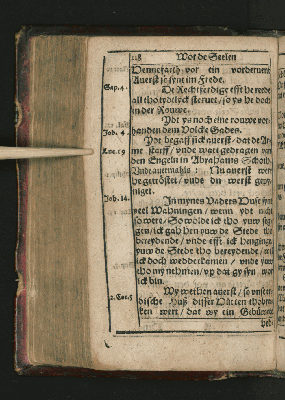 118 Wot de Seelen
vor ein vordervent
Averst se synt im Frede.
Sap. 4. De Rechtferdige efft he rede
all tho tydlyck stervet / so ys he doch
in der Rouwe.
Job. 4. Idt ys noch eine rouwe vor-
handen dem Volcke Gades.
Luc. 19 Idt begaff sick averst / dat de Ar-
me starff / unde wart gedragen van
den Engeln in Abrahams Schoth.
Unde avermahls / Nu averst wert
he getröstet / unde du werst gepy-
niget.
Joh. 14. In mynes Vaders Huse synt
veel Waningen / wenn ydt nicht
so were / So wolde ick tho yuw seg-
gen / ick gah hen yuw de Stede tho
bereydende / unde efft ick henginge
yuw de Stede tho bereydende / wil
ick doch wedderkamen / unde yuw
tho my nehmen / up dat gy syn wor
ick bin.
2. Cor. 5 Wy wethen averst / so unse er-
dische Huß disser Hütten thobra-
ken wert / dat wy ein Gebüwte
heb-